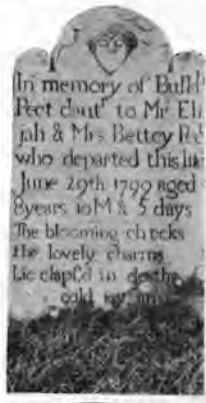 In memory of
Peet daut.r to Mr Eli
jah & Mrs Bettey
who departed this life
June 29th 1799 aged
8 years 10 M & 5 days
The blooming cheeks
the lovely charms
Lie clasp'd in deaths
cold